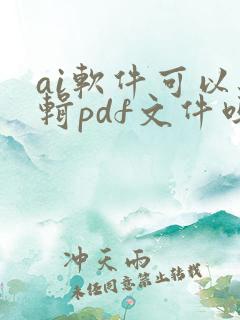 ai軟件可以
輯pdf文件
冲天雨
未經同意禁止转载